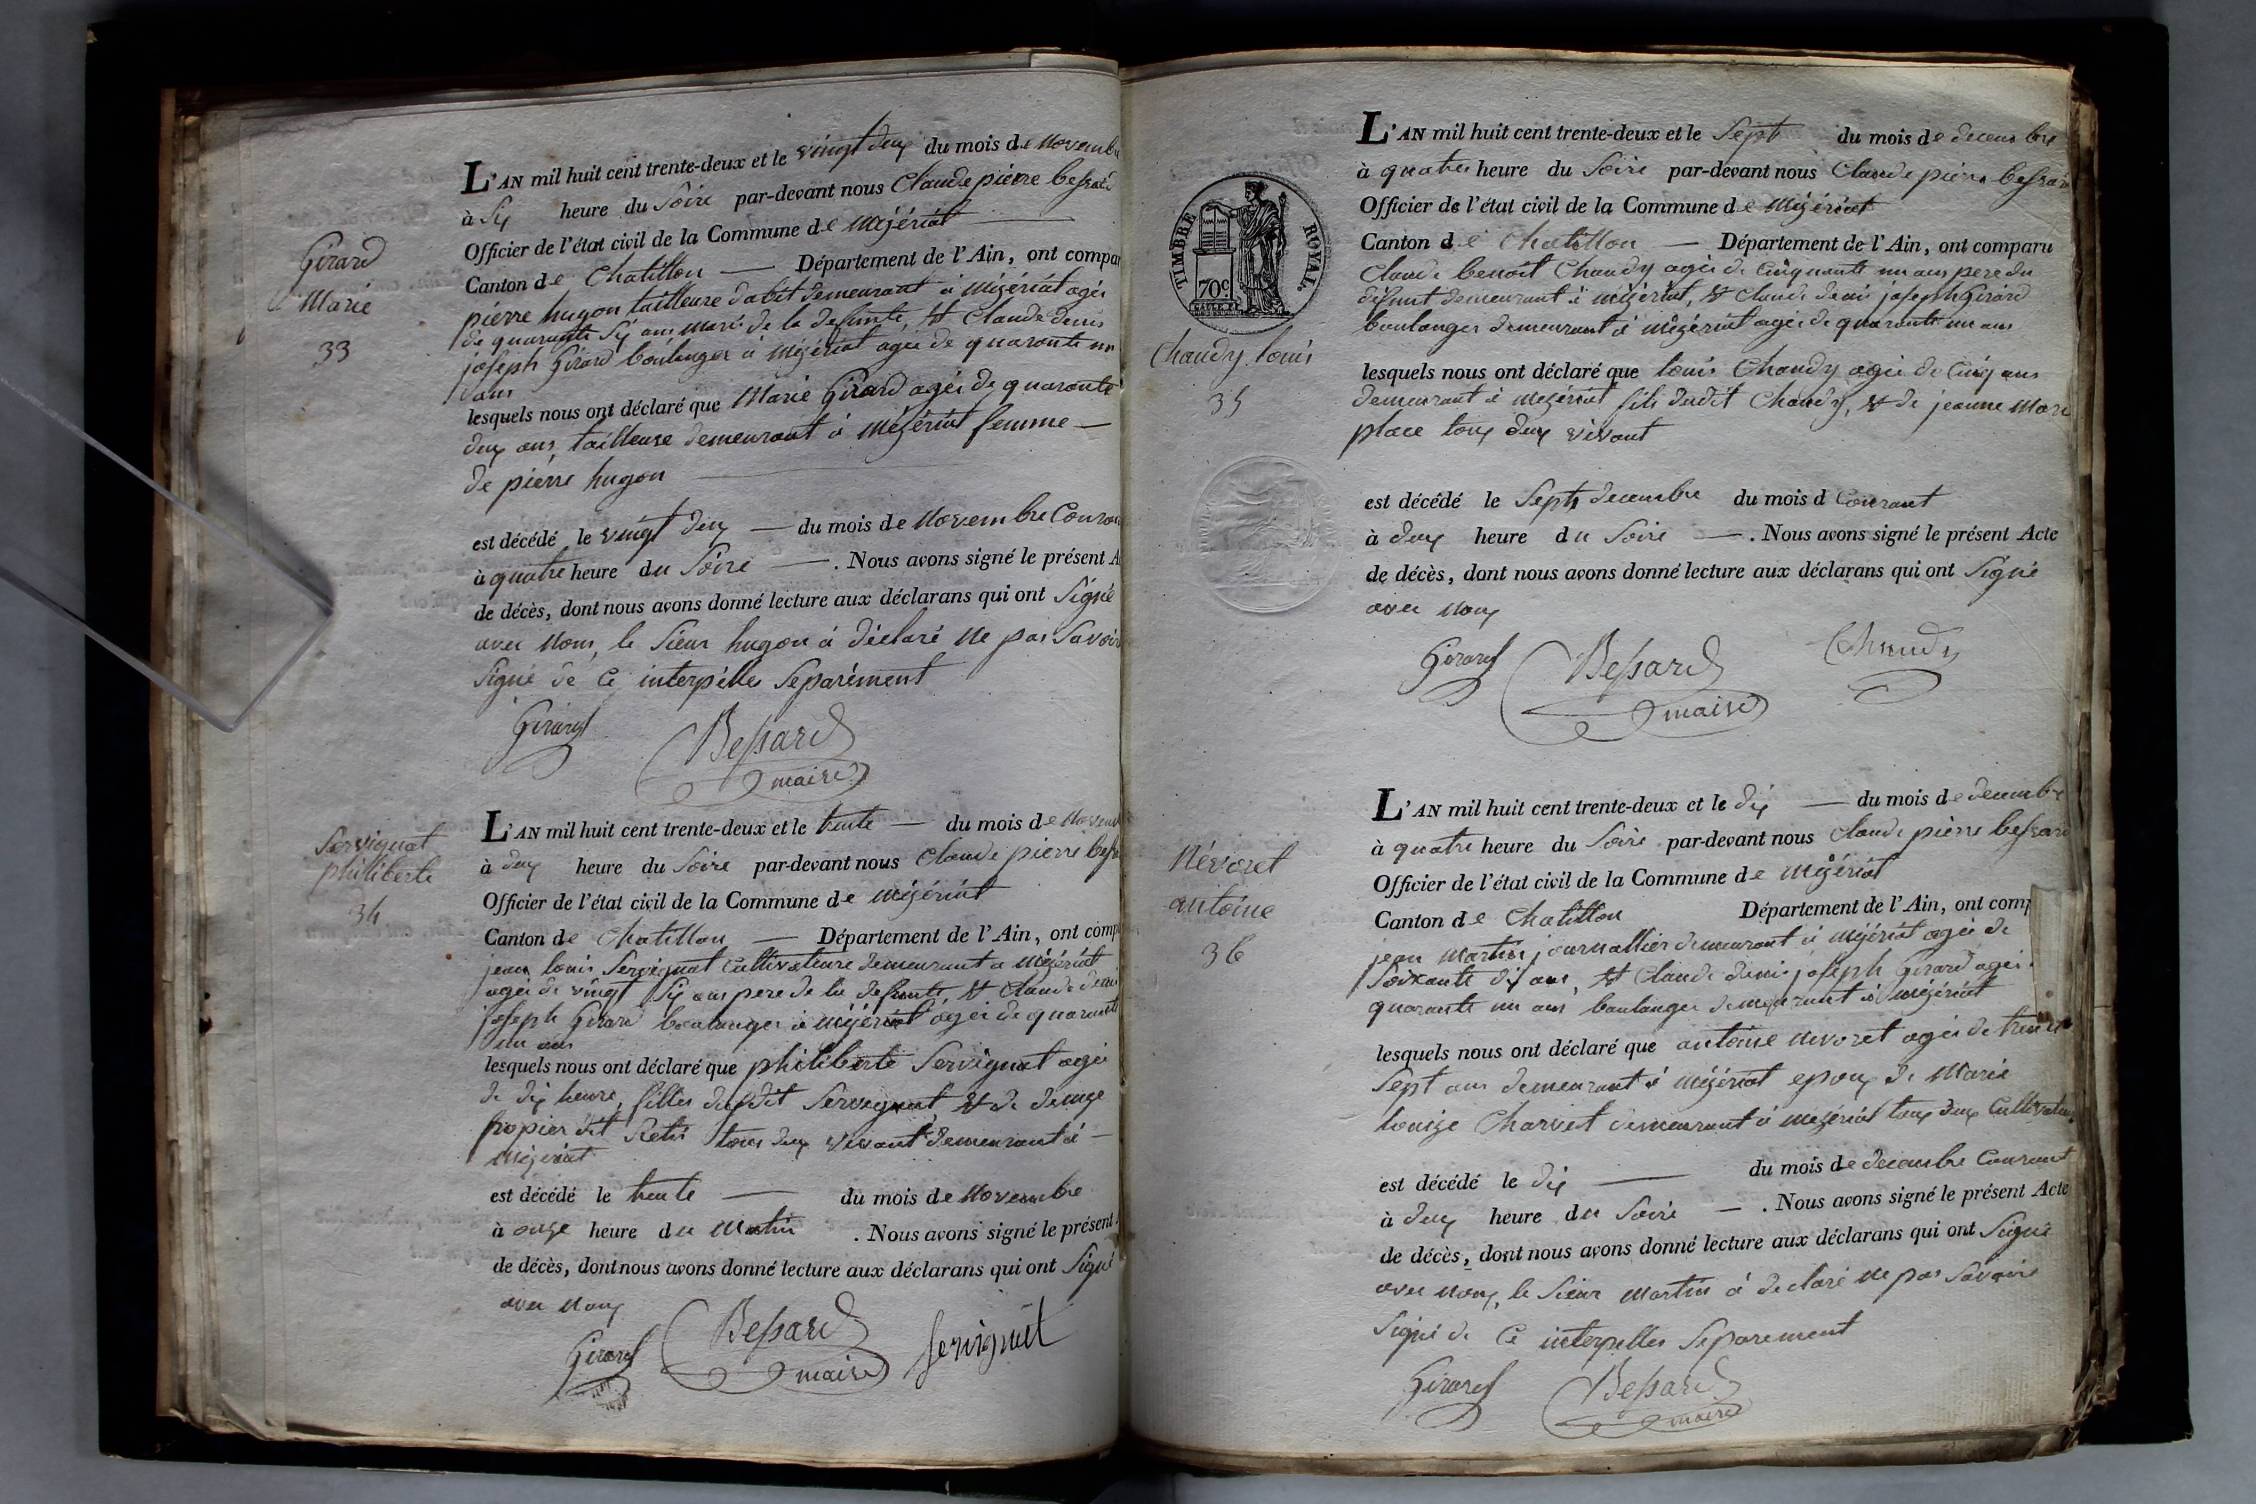 Girard
Marie
33
L'AN mil huit cent trente-deux et le vingt deux du mois de Novembre
à Six heure du Soire par-devant nous Claude pierre bessard
Officier de l'état civil de la Commune de Mézériat
Canton de Chatillon — Département de l'Ain, ont compar
pierre hugon tailleure dabit demeurant à Mézériat agée
de quarante Six ans Mari de la defunte, & Claude denis
joseph Girard boulanger à Mézériat agée de quarante un
ans
lesquels nous ont déclaré que Marie Girard agée de quarante
deux ans, tailleuse demeurant à Mézériat femme —
de pierre hugon
est décédé le vingt deux — du mois de Novembre Courant
à quatre heure du Soire — . Nous avons signé le présent A
de décès, dont nous avons donné lecture aux déclarans qui ont Signé
avec Nous, le Sieur hugon à déclaré Ne pas Savoir
Signé de Ce interpellés Separément
Girard Bessard
maire
Servignat
philiberte
34
L'AN mil huit cent trente-deux et le trente — du mois de Novem
à deux heure du Soire par-devant nous Claude pierre bessa
Officier de l'état civil de la Commune de Mézériat
Canton de Chatillon — Département de l'Ain, ont comp
jean louis Servignat Cultivateure demeurant a Mézériat
agée de vingt Six ans pere de la defunte, & Claude denis
joseph Girard boulanger à Mézériat agée de quarante
un ans
lesquels nous ont déclaré que philiberte Servignat agée
de dix heure, filles dudit Servignat, & de denize
fropier dit Retis tous deux vivant demeurant à —
Mézériat
est décédé le trente — du mois de Novembre
à onze heure du Matin . Nous avons signé le présent
de décès, dont nous avons donné lecture aux déclarans qui ont Signé
avec Nous
Girard Bessard Servignat
maire
TIMBRE ROYAL.
70c
Chaudy louis
35
L'AN mil huit cent trente-deux et le Sept du mois de decembre
à quatre heure du Soire par-devant nous Claude pierre bessard
Officier de l'état civil de la Commune de Mézériat
Canton de Chatillon — Département de l'Ain, ont comparu
Claude benoit Chaudy agée de Cinquante un ans pere du
défunt demeurant à Mézériat, & Claude denis joseph Girard
boulanger demeurant à Mézériat agée de quarante un ans
lesquels nous ont déclaré que louis Chaudy agée de Cinq ans
demeurant à Mézériat fils dudit Chaudy, & de jeanne Marie
place tous deux vivant
est décédé le Sept decembre du mois d Courant
à deux heure du Soire — . Nous avons signé le présent Acte
de décès, dont nous avons donné lecture aux déclarans qui ont Signé
avec Nous
Girard Bessard Chaudy
maire
Névoret
antoine
36
L'AN mil huit cent trente-deux et le dix — du mois de decembre
à quatre heure du Soire par-devant nous Claude pierre bessard
Officier de l'état civil de la Commune de Mézériat
Canton de Chatillon Département de l'Ain, ont comp
jean Martin journallier demeurant à Mézériat agée de
Soixante dix ans, & Claude denis joseph Girard agée
quarante un ans boulanger demeurant à Mézériat
lesquels nous ont déclaré que antoine Nevoret agée de trente
Sept ans demeurant à Mézériat epoux de Marie
louize Charvet demeurant à Mézériat tous deux Cultivateu
est décédé le dix — du mois de decembre Courant
à deux heure du Soire — . Nous avons signé le présent Acte
de décès, dont nous avons donné lecture aux déclarans qui ont Signé
avec Nous, le Sieur Martin à declaré Ne pas Savoire
Signé de Ce interpelles Separement
Girard Bessard
maire